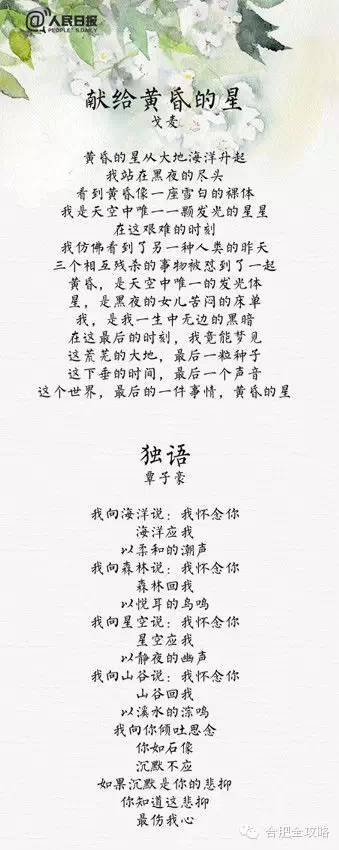 @人民日报
PEOPLE'S DAILY
献给黄昏的星
戈麦
黄昏的星从大地海洋升起
我站在黑夜的尽头
看到黄昏像一座雪白的裸体
我是天空中唯一一颗发光的星星
在这艰难的时刻
我仿佛看到了另一种人类的昨天
三个相互残杀的事物被怼到了一起
黄昏，是天空中唯一的发光体
星，是黑夜的女儿苦闷的床单
我，是我一生中无边的黑暗
在这最后的时刻，我竟能梦见
这荒芜的大地，最后一粒种子
这下垂的时间，最后一个声音
这个世界，最后的一件事情，黄昏的星
独语
覃子豪
我向海洋说：我怀念你
海洋应我
以柔和的潮声
我向森林说：我怀念你
森林回我
以悦耳的鸟鸣
我向星空说：我怀念你
星空应我
以静夜的幽声
我向山谷说：我怀念你
山谷回我
以溪水的淙鸣
我向你倾吐思念
你如石像
沉默不应
如果沉默是你的悲抑
你知道这悲抑
最伤我心
合肥全攻略